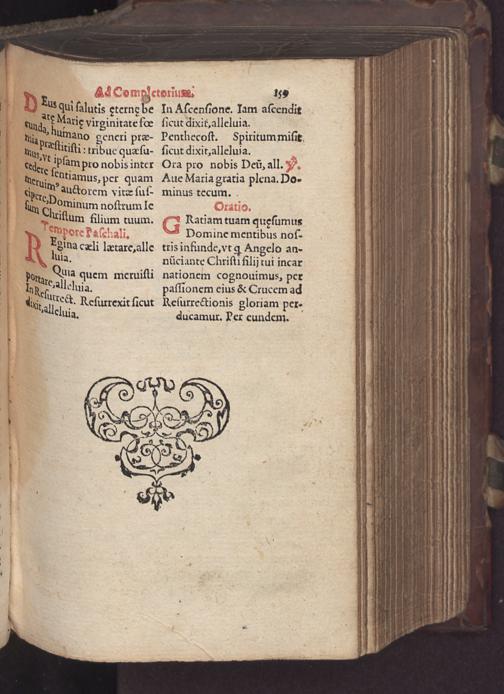 Ad Completorium. 159
DEus qui salutis ęternę be
atę Marię virginitate fœ
cunda, humano generi præ-
mia præstitisti: tribue quæsu-
mus, vt ipsam pro nobis inter
cedere sentiamus, per quam
meruimꝰ auctorem vitæ sus-
cipere, Dominum nostrum Ie
sum Christum filium tuum.
Tempore Paschali.
REgina cæli lætare, alle
luia.
Quia quem meruisti
portare, alleluia.
In Resurrect. Resurrexit sicut
dixit, alleluia.
In Ascensione. Iam ascendit
sicut dixit, alleluia.
Penthecost. Spiritum misit
sicut dixit, alleluia.
Ora pro nobis Deũ, all. ℣.
Aue Maria gratia plena. Do-
minus tecum.
Oratio.
GRatiam tuam quęsumus
Domine mentibus nos-
tris infunde, vt q Angelo an-
nũciante Christi filij tui incar
nationem cognouimus, per
passionem eius & Crucem ad
Resurrectionis gloriam per-
ducamur. Per eundem.